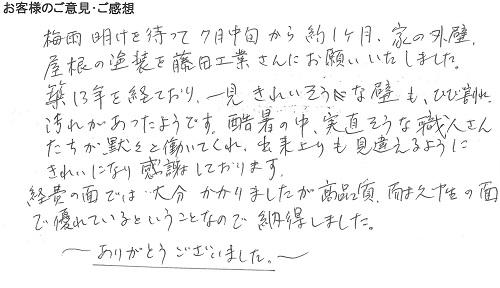 お客様のご意見・ご感想
梅雨明けを待って7月中旬から約1ヶ月、家の外壁、
屋根の塗装を藤田工業さんにお願いいたしました。
築13年を経ており、一見きれいそうな壁も、ひび割れ
汚れがあったようです。酷暑の中、実直そうな職人さん
たちが黙々と働いてくれ、出来上りも見違えるように
きれいになり感謝しております。
経費の面では大分かかりましたが高品質、耐久性の面
で優れているということなので納得しました。
〜ありがとうございました。〜